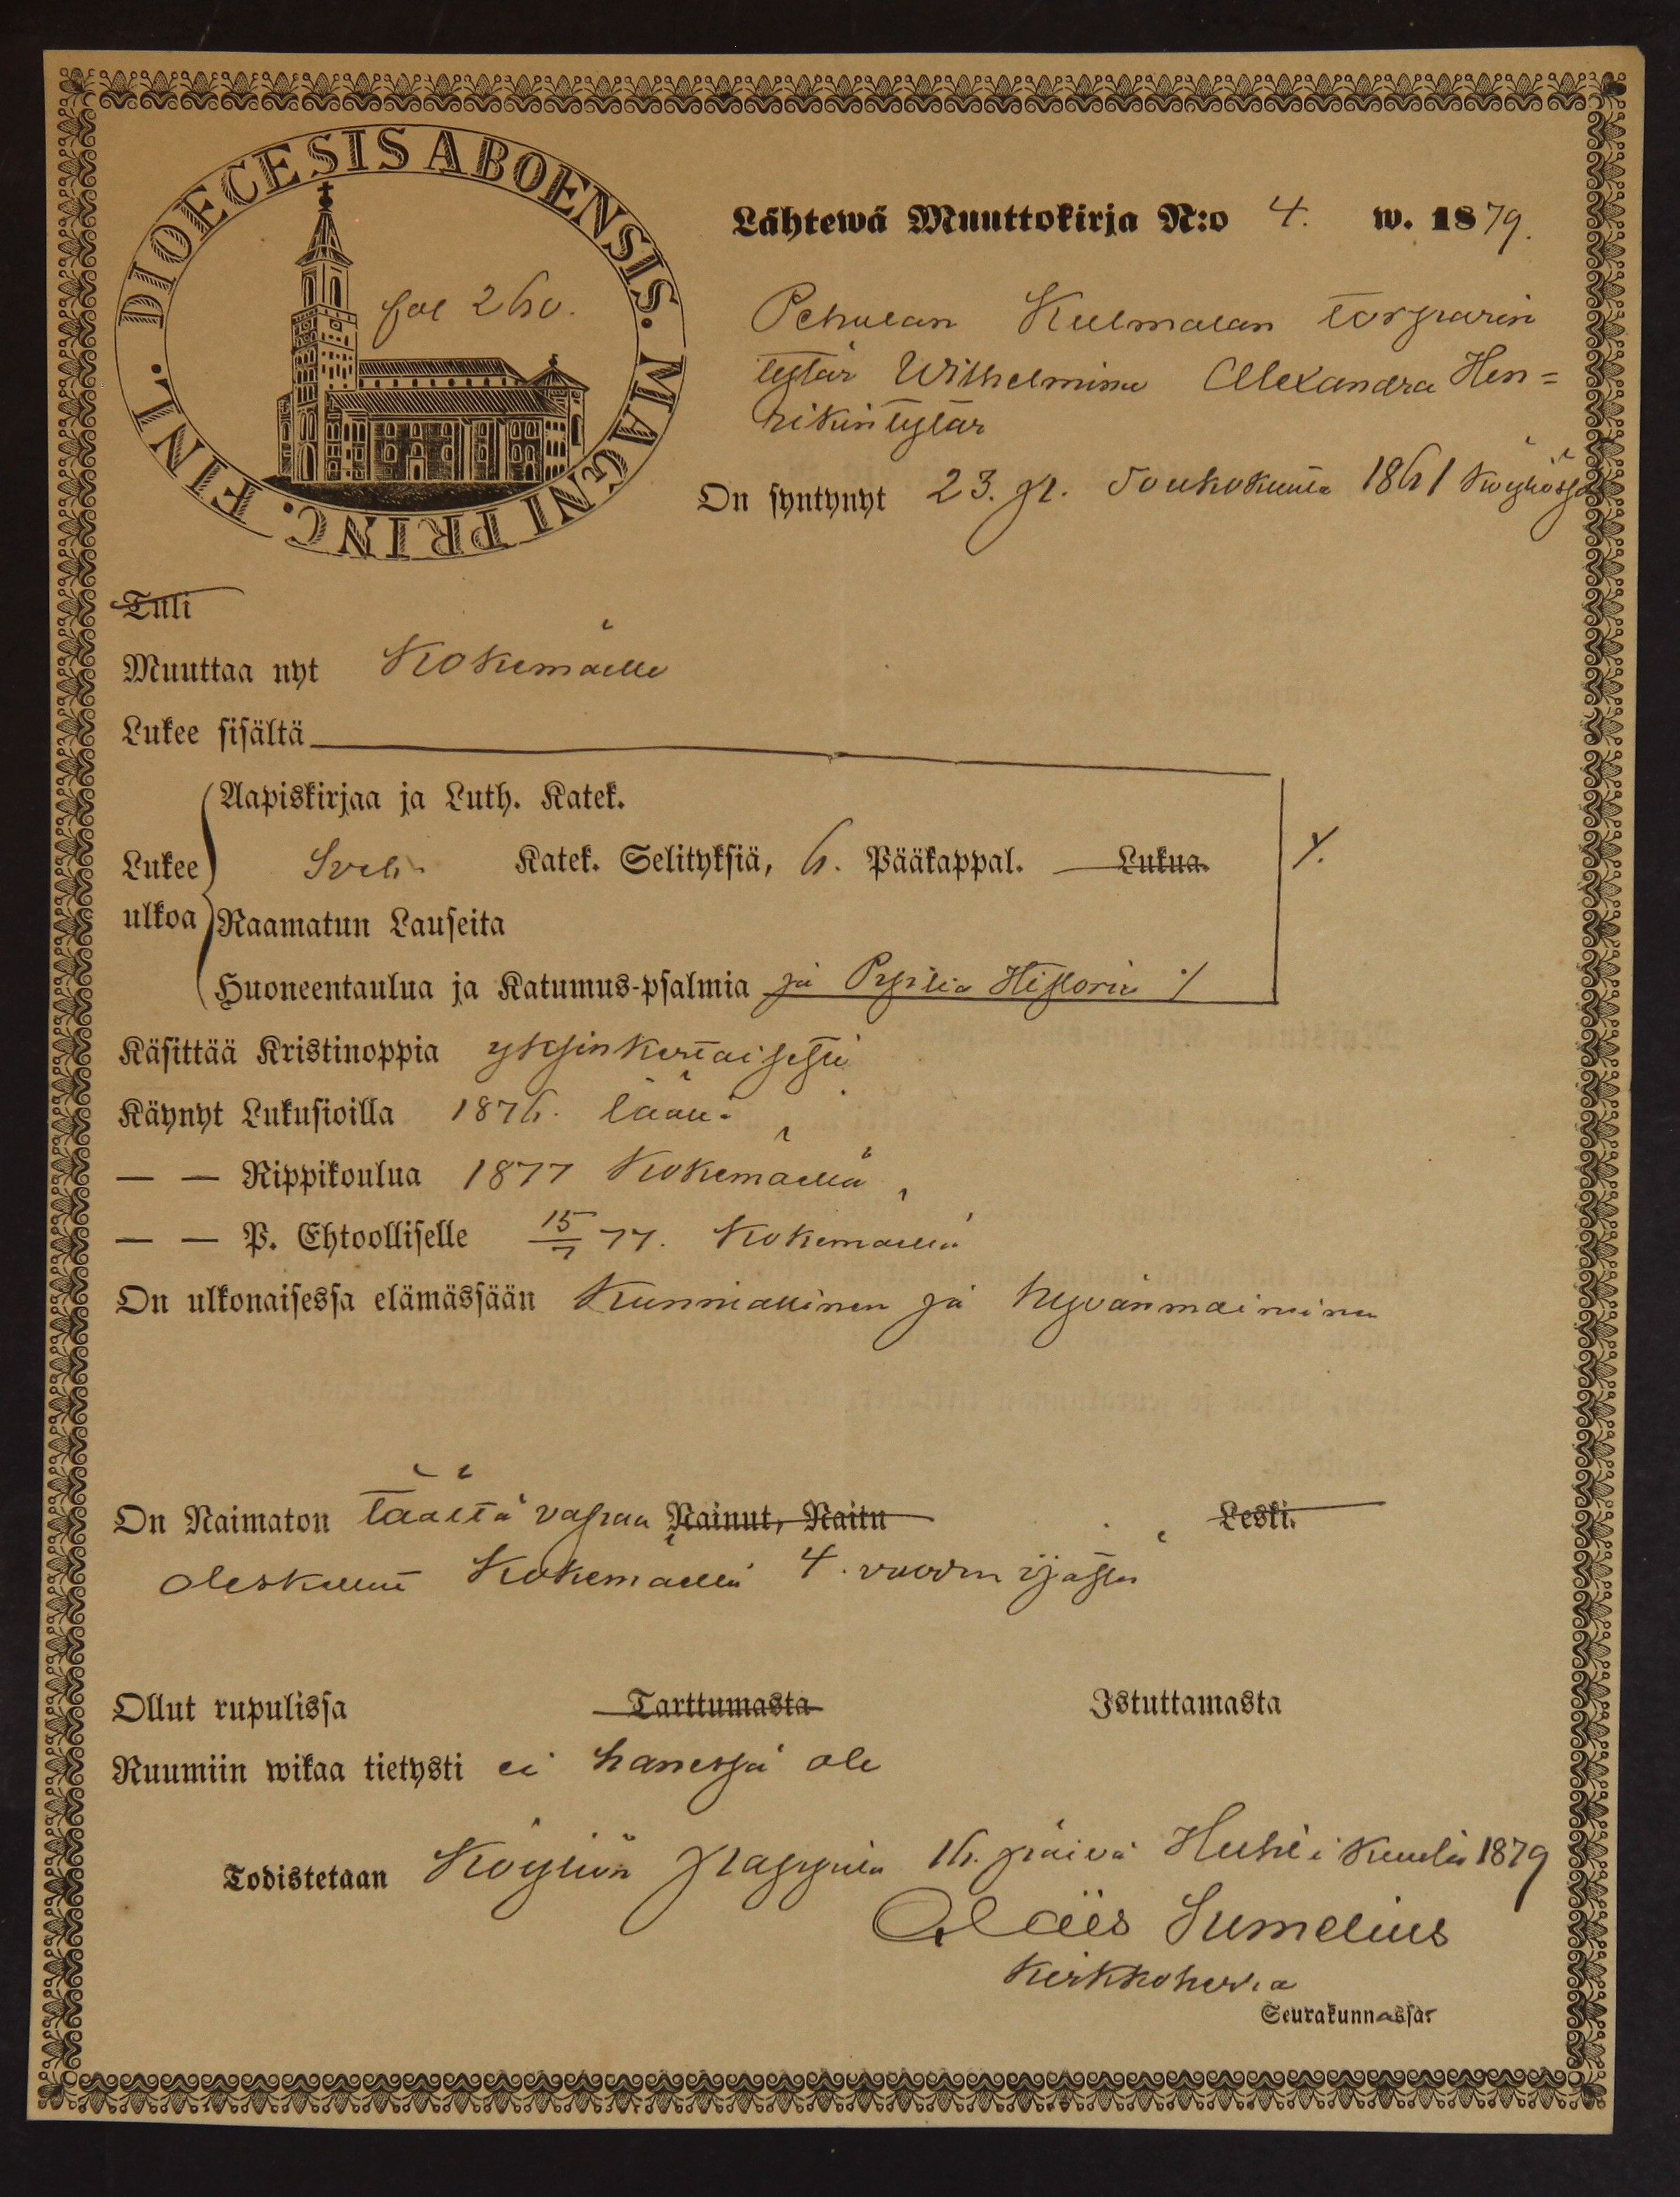 DIOECESIS ABOENSIS. MAGNI PRINC. FINL.
fol 260.
Lähtewä Muuttokirja N:o 4. w. 1879.
Pehulan Kulmalan torparin
tytär Wilhelmina Alexandra Hen=
rikintytär
On syntynyt 23. p. Toukokuuta 1861 Köyliössä
Tuli
Muuttaa nyt Kokemäelle
Lukee sisältä
Aapiskirjaa ja Luth. Katek.
Lukee Sveb. Katek. Selityksiä, 6. Pääkappal. Lukua.
ulkoa Raamatun Lauseita
Huoneentaulua ja Katumus-psalmia ja Pyplia Historia
Käsittää Kristinoppia yksinkertaisesti
Käynyt Lukusioilla 1876. tääll.
— — Rippikoulua 1877 Kokemäellä
— — P. Ehtoolliselle 15/7 77. Kokemäellä
On ulkonaisessa elämässään Kunniallinen ja hyvänmaininen
On Naimaton täältä vapaa Nainut, Naitu Leski.
oleskellut Kokemäellä 4. vuoden ijästä
Ollut rupulissa Tarttumasta Istuttamasta
Ruumiin wikaa tietysti ei hänessä ole
Todistetaan Köyliön pappila 16. päivä Huhtikuulla 1879
Sumelius
Kirkkoherra
Seurakunnassa.